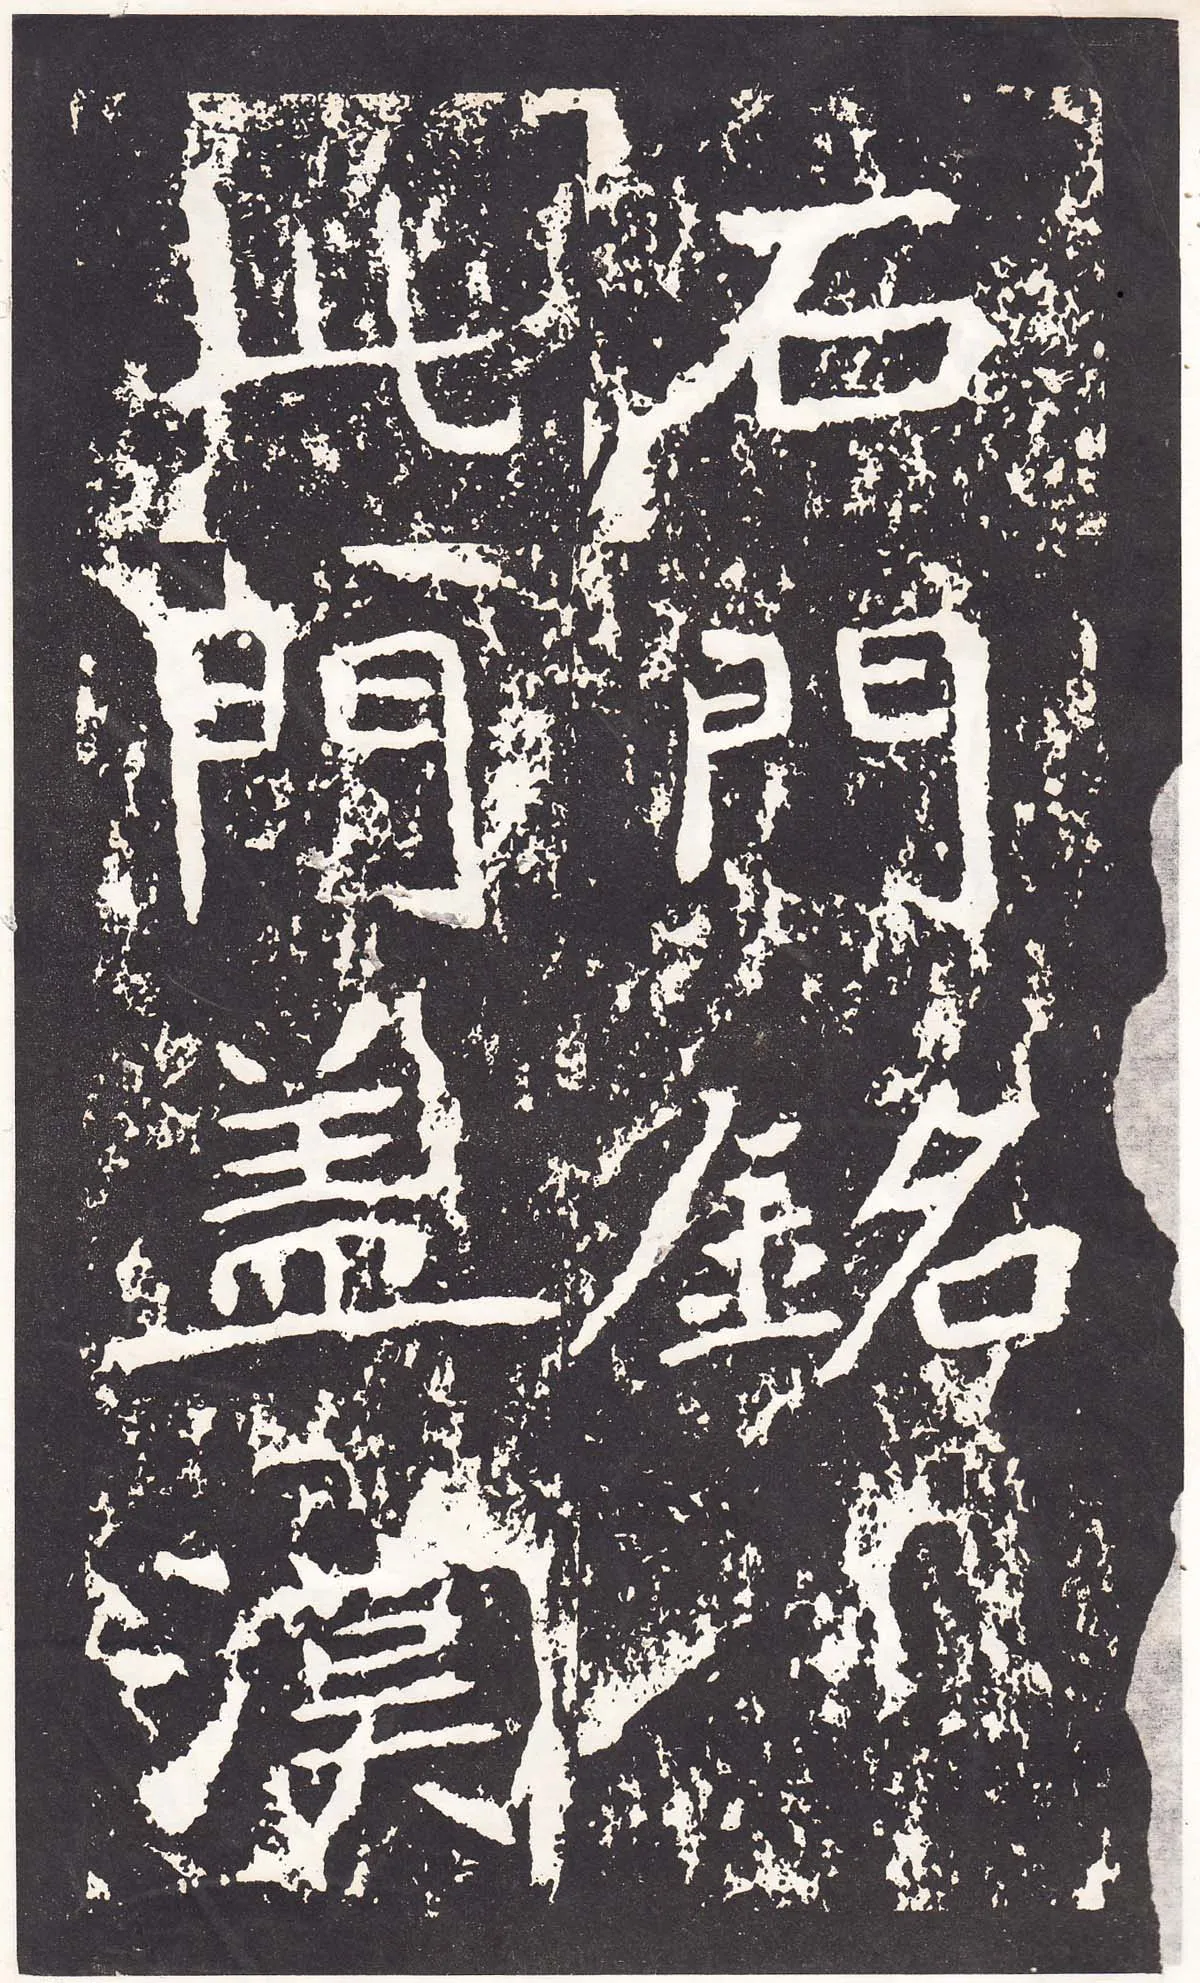 石門銘
此門蓋漢